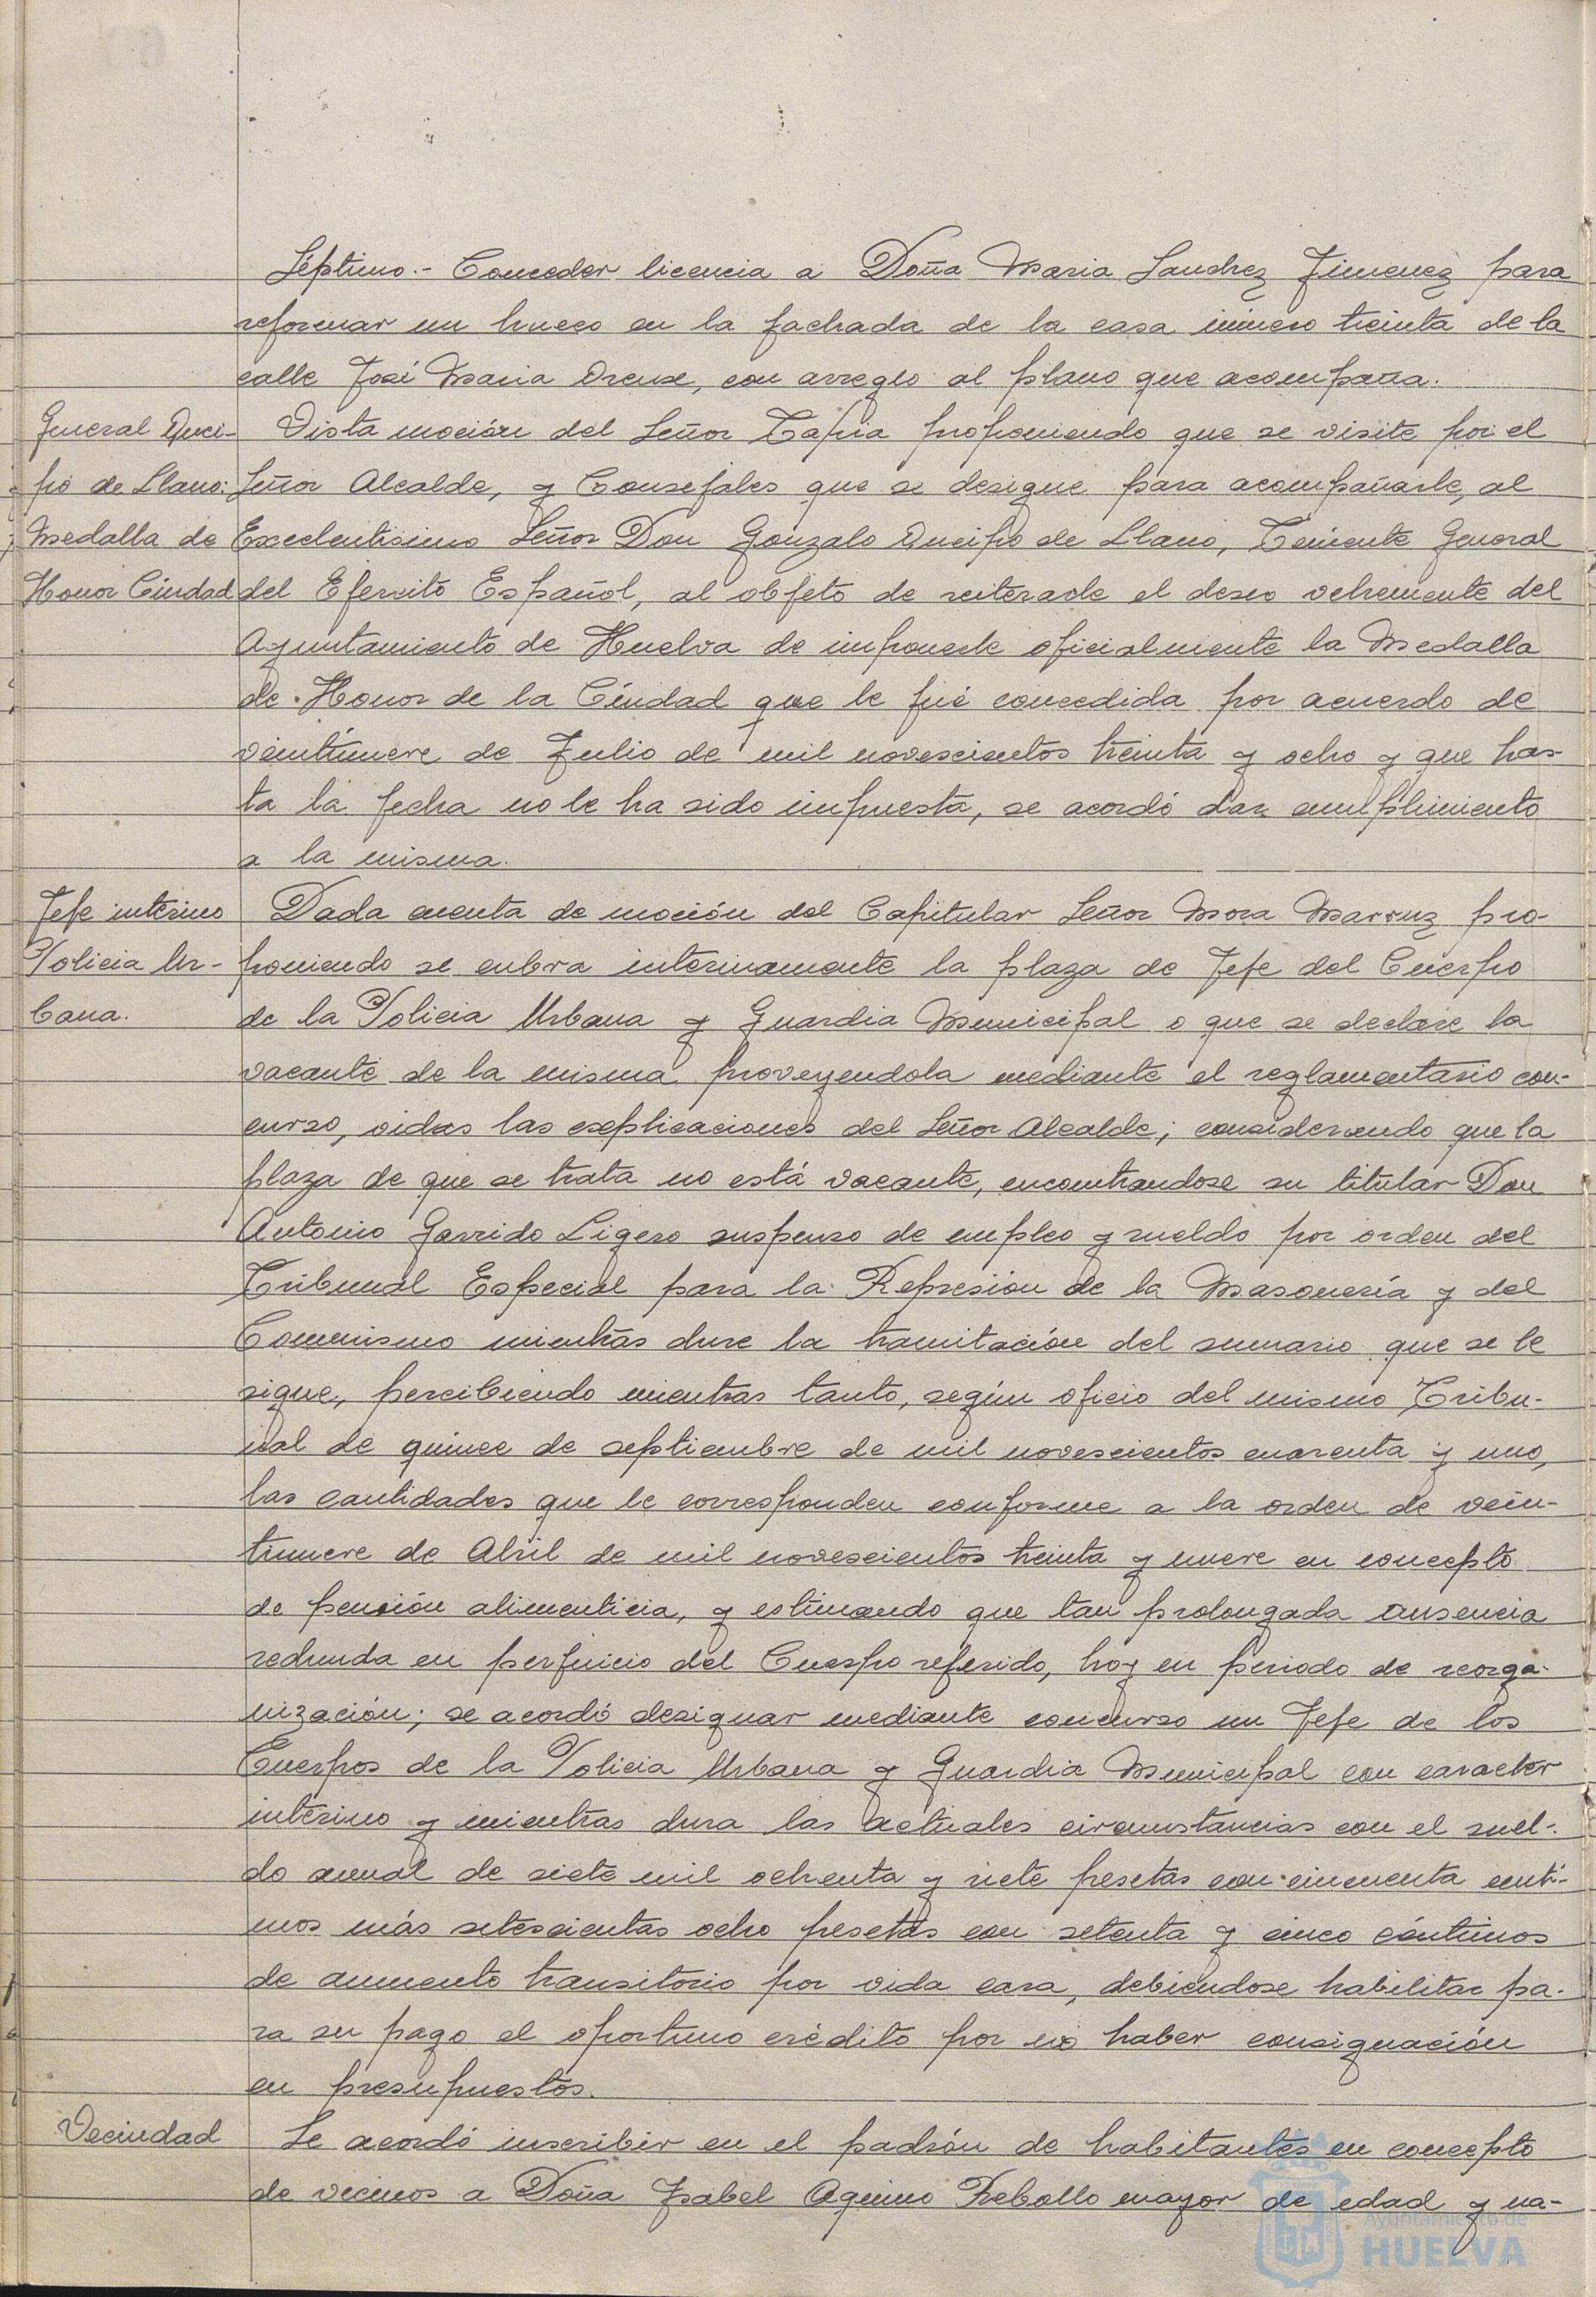 Séptimo.- Conceder licencia a Doña Maria Sanchez Jimenez para
reformar un hueco en la fachada de la casa número treinta de la
calle José Maria Orense, con arreglo al plano que acompaña.
General Quei-
po de Llano:
Medalla de
Honor Ciudad
Vista moción del Señor Tapia proponiendo que se visite por el
Señor Alcalde, y Consejales que se designe para acompañarle, al
Excelentisimo Señor Don Gonzalo Queipo de Llano, Teniente General
del Ejercito Español, al objeto de reiterarle el deseo vehemente del
Ayuntamiento de Huelva de imponerle oficialmente la Medalla
de Honor de la Ciudad que le fué concedida por acuerdo de
veintinueve de Julio de mil novescientos treinta y ocho y que has-
ta la fecha no le ha sido impuesta, se acordó dar cumplimiento
a la misma.
Jefe interino
Policia Ur-
bana.
Dada cuenta de moción del Capitular Señor Mora Marruz pro-
poniendo se cubra interinamente la plaza de Jefe del Cuerpo
de la Policia Urbana y Guardia Municipal o que se declare la
vacante de la misma proveyendola mediante el reglamentario con-
curso, oidas las explicaciones del Señor Alcalde; considerando que la
plaza de que se trata no está vacante, encontrandose su titular Don
Antonio Garrido Ligero suspenso de empleo y sueldo por orden del
Tribunal Especial para la Represion de la Masonería y del
Comunismo mientras dure la tramitación del sumario que se le
sigue, percibiendo mientras tanto, según oficio del mismo Tribu-
nal de quince de septiembre de mil novescientos cuarenta y uno,
las cantidades que le corresponden conforme a la orden de vein-
tinueve de Abril de mil novescientos treinta y nueve en concepto
de pensión alimenticia, y estimando que tan prolongada ausencia
redunda en perjuicio del Cuerpo referido, hoy en periodo de reorga-
nización; se acordó designar mediante concurso un Jefe de los
Cuerpos de la Policia Urbana y Guardia Municipal con caracter
interino y mientras dura las actuales circunstancias con el suel-
do anual de siete mil ochenta y siete pesetas con cincuenta centi-
mos más setescientas ocho pesetas con setenta y cinco céntimos
de aumento transitorio por vida cara, debiendose habilitar pa-
ra su pago el oportuno crédito por no haber consignación
en presupuestos.
Vecindad
Se acordó inscribir en el padrón de habitantes en concepto
de vecinos a Doña Isabel Aquino Rebollo mayor de edad y na-
Ayuntamiento de
HUELVA